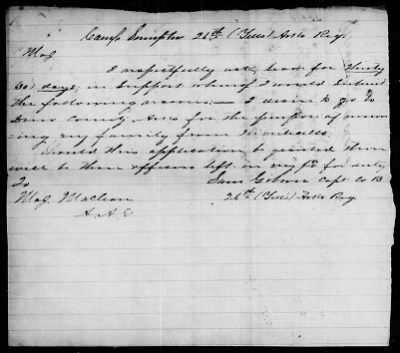 Camp Sumpter 26th (     ) Arks Regt
Maj
I respectfully ask leave for Thirty
(30) days; in support whereof I would submit
the following reasons:— I desire to go to
Drew County Arks for the purpose of remov-
ing my family from
Should this application be granted there
will be three officers left in my Co for duty
To Sam Gibson Capt Co B
Maj Maclean 26th Arks Reg
A. A. G